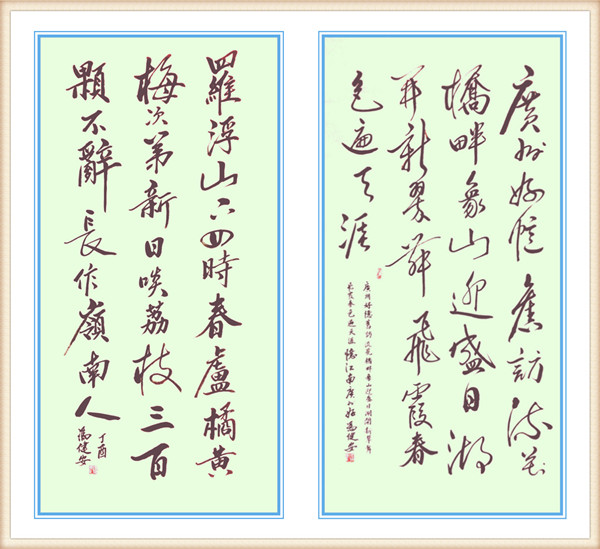 廣州好憶舊訪流花
橋畔象山迎盛日湖
開新翠舞飛霞春
色遍天涯
廣州好憶舊訪流花橋畔象山迎盛日湖開新翠舞
飛霞春色遍天涯 憶江南廣州好 馮健安
羅浮山下四時春盧橘黃
梅次第新日啖荔枝三百
顆不辭長作嶺南人
丁酉
馮健安